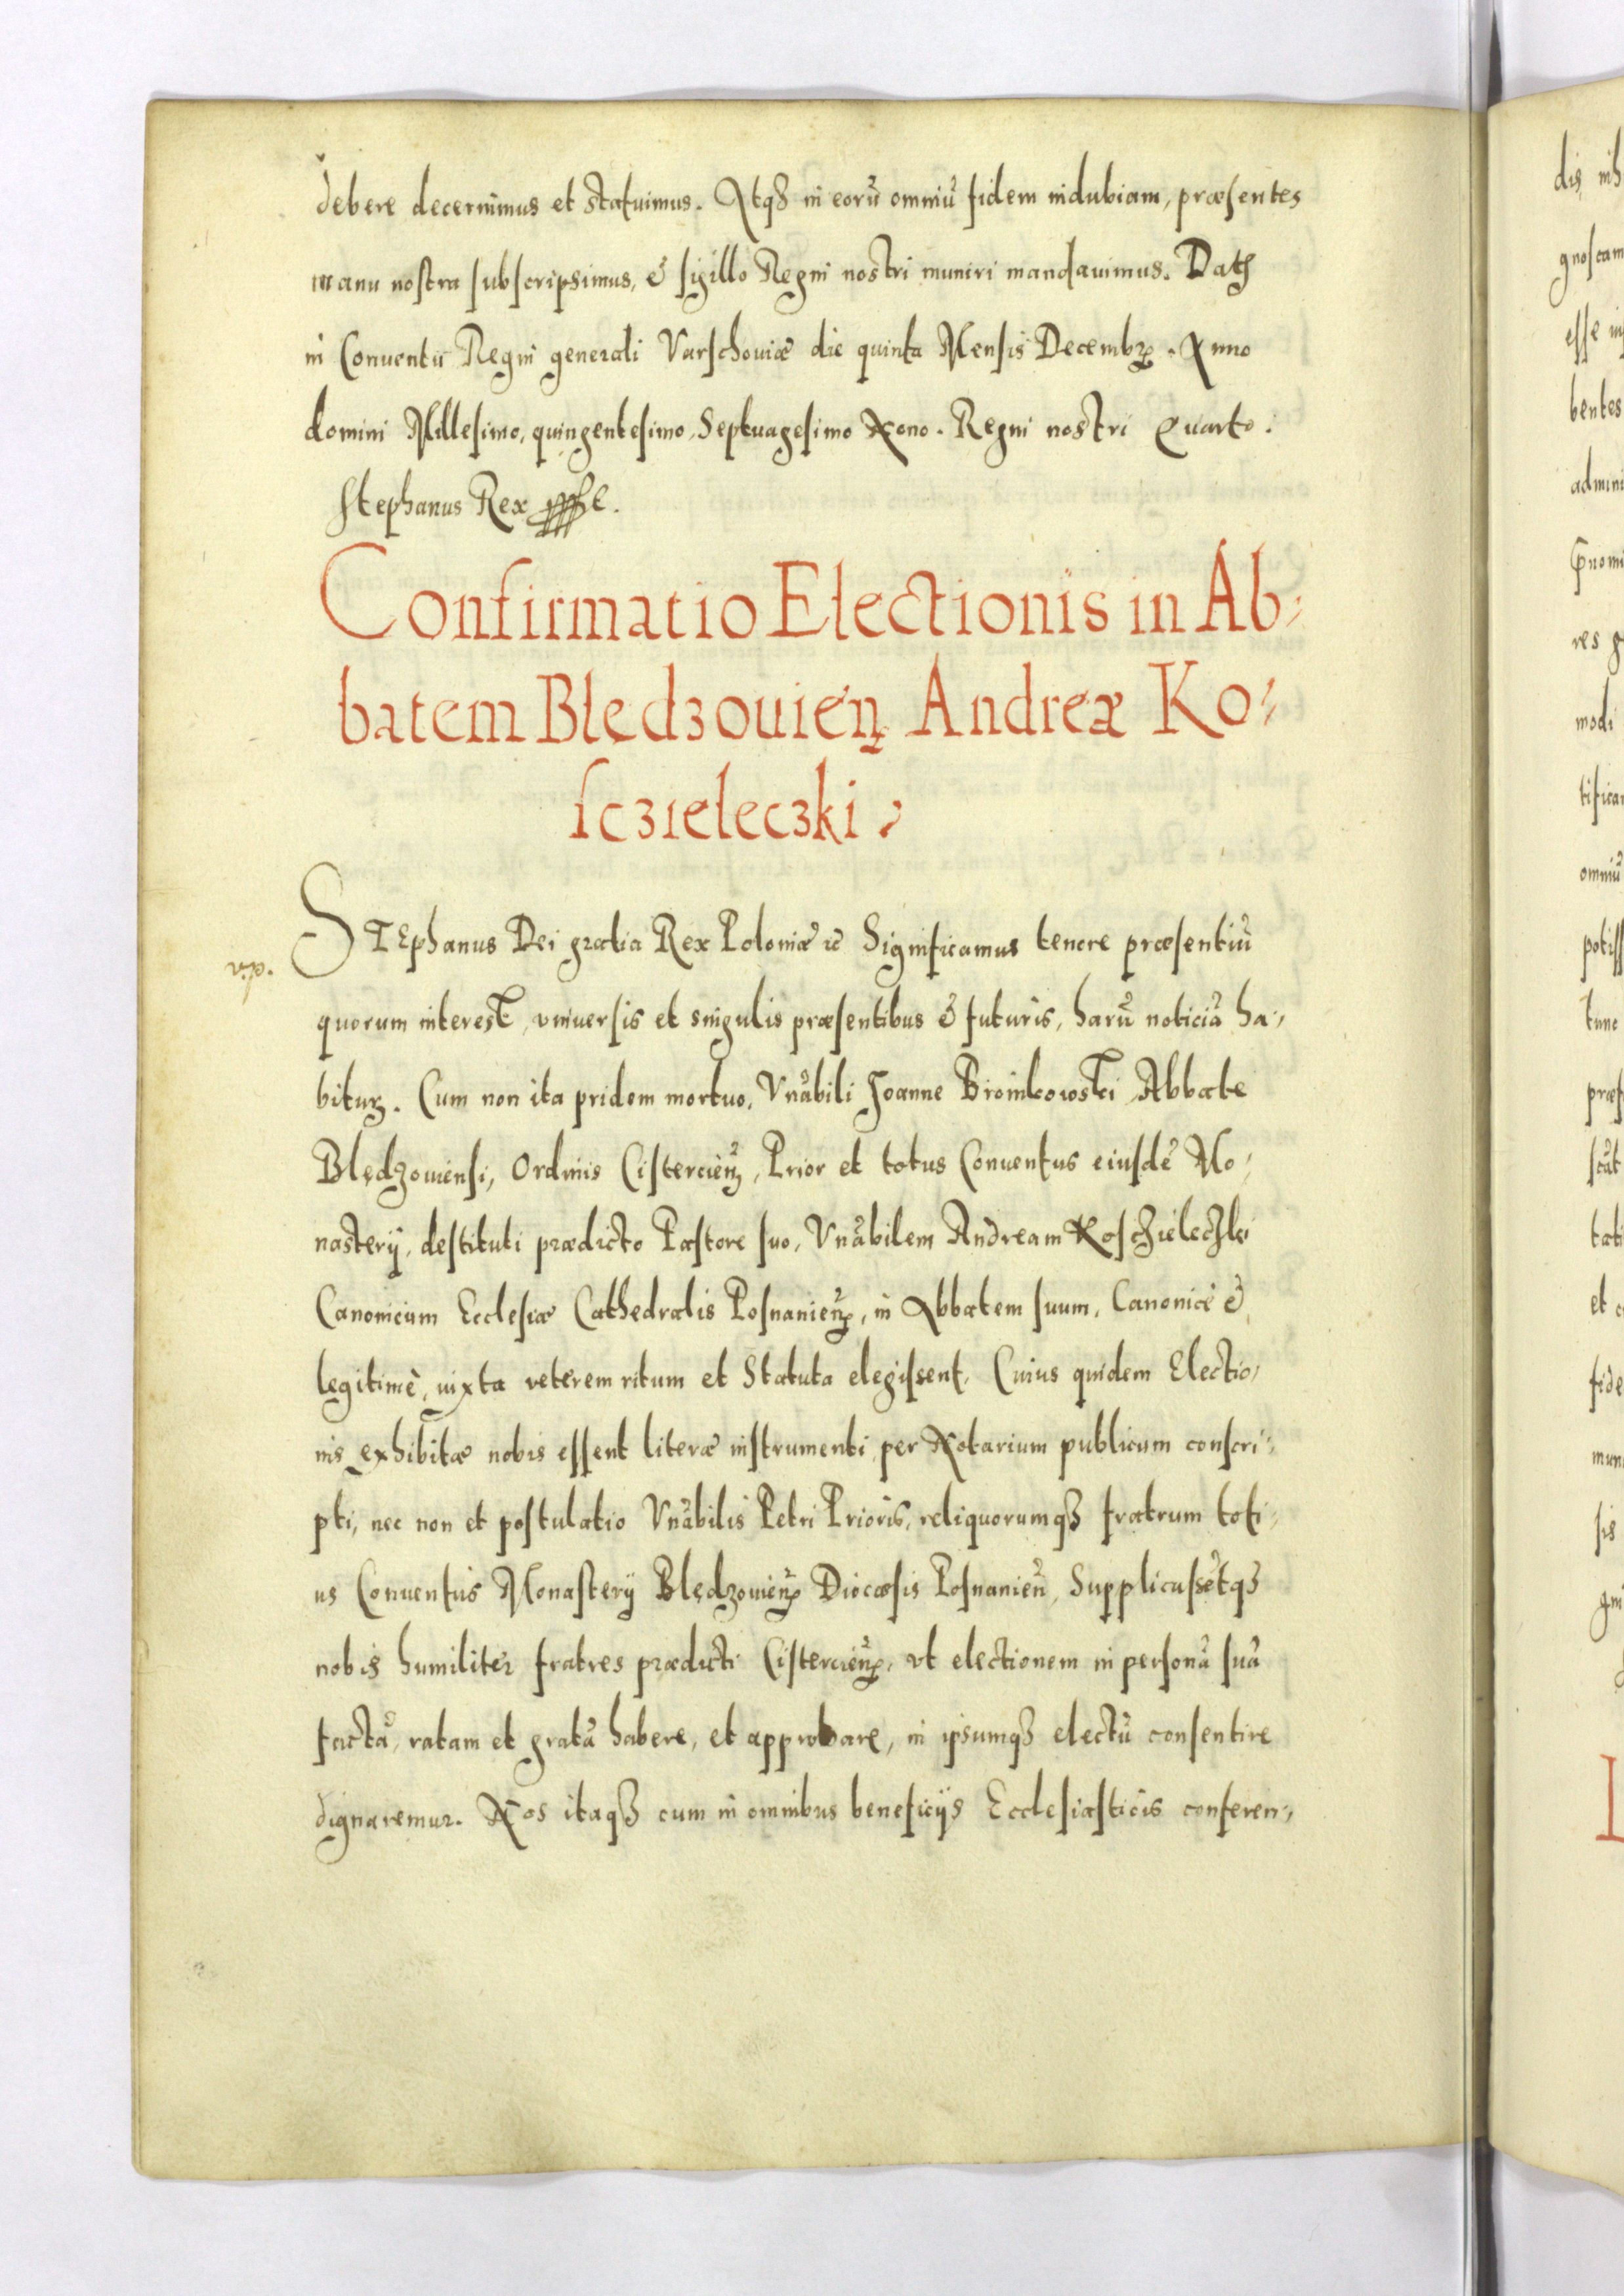 debere decernimus et statuimus. Atq₃ in eorũ omniũ fidem indubiam, præsentes
manu nostra subscripsimus, & sigillo Regni nostri muniri mandauimus. Datꝭ
in Conuentu Regni generali Varschouiæ die quinta Mensis Decembꝝ. Anno
domini Millesimo, quingentesimo, Septuagesimo Nono. Regni nostri Quarto.
Stephanus Rex
Confirmatio Electionis in Ab⸗
batem Blędzouien̄ Andreæ Ko⸗
sczieleczki
STEphanus Dei gratia Rex Poloniæ &c Significamus tenore præsentiũ
quorum interest, vniuersis et singulis præsentibus & futuris, harũ noticiã ha⸗
bituꝝ. Cum non ita pridem mortuo, Vnãbili Joanne Broinikowski Abbate
Blędzouiensi, Ordinis Cistercien̄, Prior et totus Conuentus eiusdẽ Mo⸗
nasterÿ, destituti prædicto Pastore suo, Vnãbilem Andream Koscziełeczki
Canonicum Ecclesiæ Cathedralis Posnanien̄, in Abbatem suum, Canonicè &
legitimè, iuxta veterem ritum et Statuta elegissent, Cuius quidem Electio⸗
nis exhibitæ nobis essent literæ instrumenti per Notarium publicum conscri⸗
pti, nec non et postulatio Vnãbilis Petri Prioris, reliquorumq₃ fratrum toti⸗
us Conuentus Monasterÿ Blędzouien̄ Diocæsis Posnanien̄, Supplicassẽtq₃
nobis humiliter fratres prædicti Cistercien̄, vt electionem in personã suã
factã, ratam et gratã habere, et approbare, in ipsumq₃ electũ consentire
dignaremur. Nos itaq₃ cum in omnibus beneficÿs Ecclesiasticis conferen⸗
dis
gnoscam
esse
bentes
admini
res
modi
tifica
omniũ
potiss
tunc
præs
tati
et
fide
muni
sis